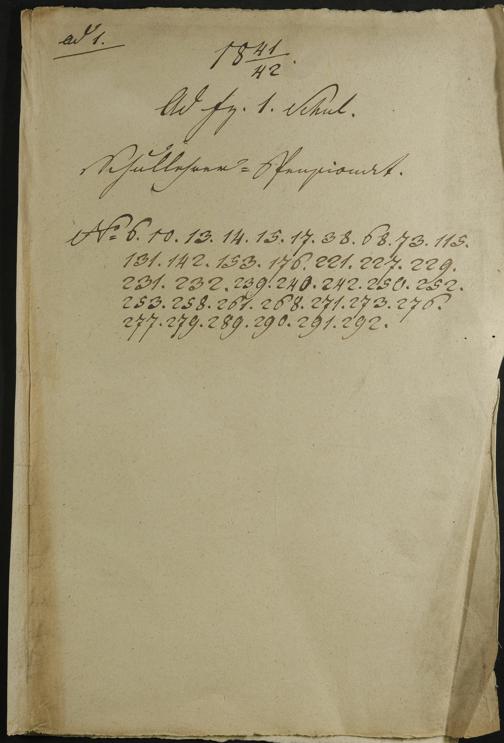 ad 1.
18 41/42.
Ad fz. 1. Schul.
Schullehrer=Pensionat.
No 6. 10. 13. 14. 15. 17. 38. 68. 73. 115.
131. 142. 153. 176. 221. 227. 229.
231. 232. 239. 240. 242. 250. 252.
253. 258. 267. 268. 271. 273. 276.
277. 279. 289. 290. 291. 292.